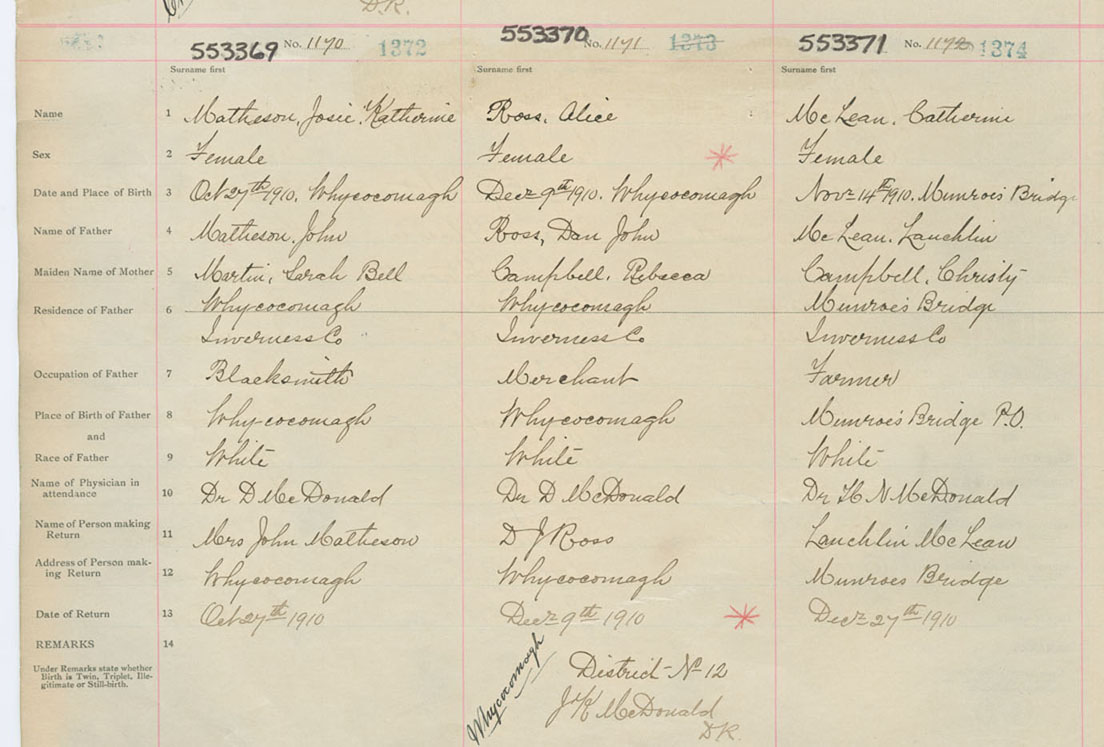 D.R.
553369 No. 1170 1372 553370 No. 1171 1373 553371 No. 1172 1374
Surname first Surname first Surname first
Name 1 Matheson, Josie Katherine Ross, Alice McLean, Catherine
Sex 2 Female Female Female
Date and Place of Birth 3 Oct 27th 1910, Whycocomagh Dec 9th 1910. Whycocomagh Nov 14th 1910. Munroe's Bridge
Name of Father 4 Matheson, John Ross, Dan John McLean, Lauchlin
Maiden Name of Mother 5 Martin, Sarah Bell Campbell, Rebecca Campbell, Christy
Residence of Father 6 Whycocomagh Whycocomagh Munroe's Bridge
Inverness Co Inverness Co Inverness Co
Occupation of Father 7 Blacksmith Merchant Farmer
Place of Birth of Father 8 Whycocomagh Whycocomagh Munroe's Bridge P.O.
and
Race of Father 9 White White White
Name of Physician in
attendance 10 Dr D McDonald Dr D McDonald Dr H N McDonald
Name of Person making
Return 11 Mrs John Matheson D J Ross Lauchlin McLean
Address of Person mak-
ing Return 12 Whycocomagh Whycocomagh Munroes Bridge
Date of Return 13 Oct 27th 1910 Dec 9th 1910 Dec 27th 1910
REMARKS 14
Under Remarks state whether
Birth is Twin, Triplet, Ille-
gitimate or Still-birth.
Whycocomagh
District No 12
J K McDonald
D.R.